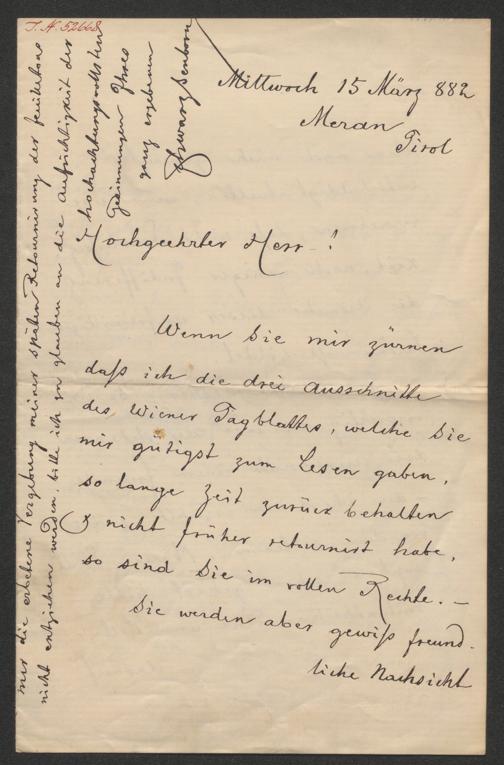 I. N. 52668
Mittwoch 15 März 882
Meran
Tirol
Hochgeehrter Herr !
Wenn Sie mir zürnen
daß ich die drei Ausschnitte
des Wiener Tagblattes, welche Sie
mir gütigst zum Lesen gaben,
so lange Zeit zurück behalten
& nicht früher retournirt habe,
so sind Sie im vollen Rechte. –
Sie werden aber gewiß freund-
liche Nachsicht
mir die erbetene Vergebung meiner späten Retournirung der Feuilletons
nicht entziehen werden, bitte ich zu glauben an die Aufrichtigkeit der
hochachtungsvollsten
Gesinnungen Ihres
ganz ergebenen
Schwarz Senborn